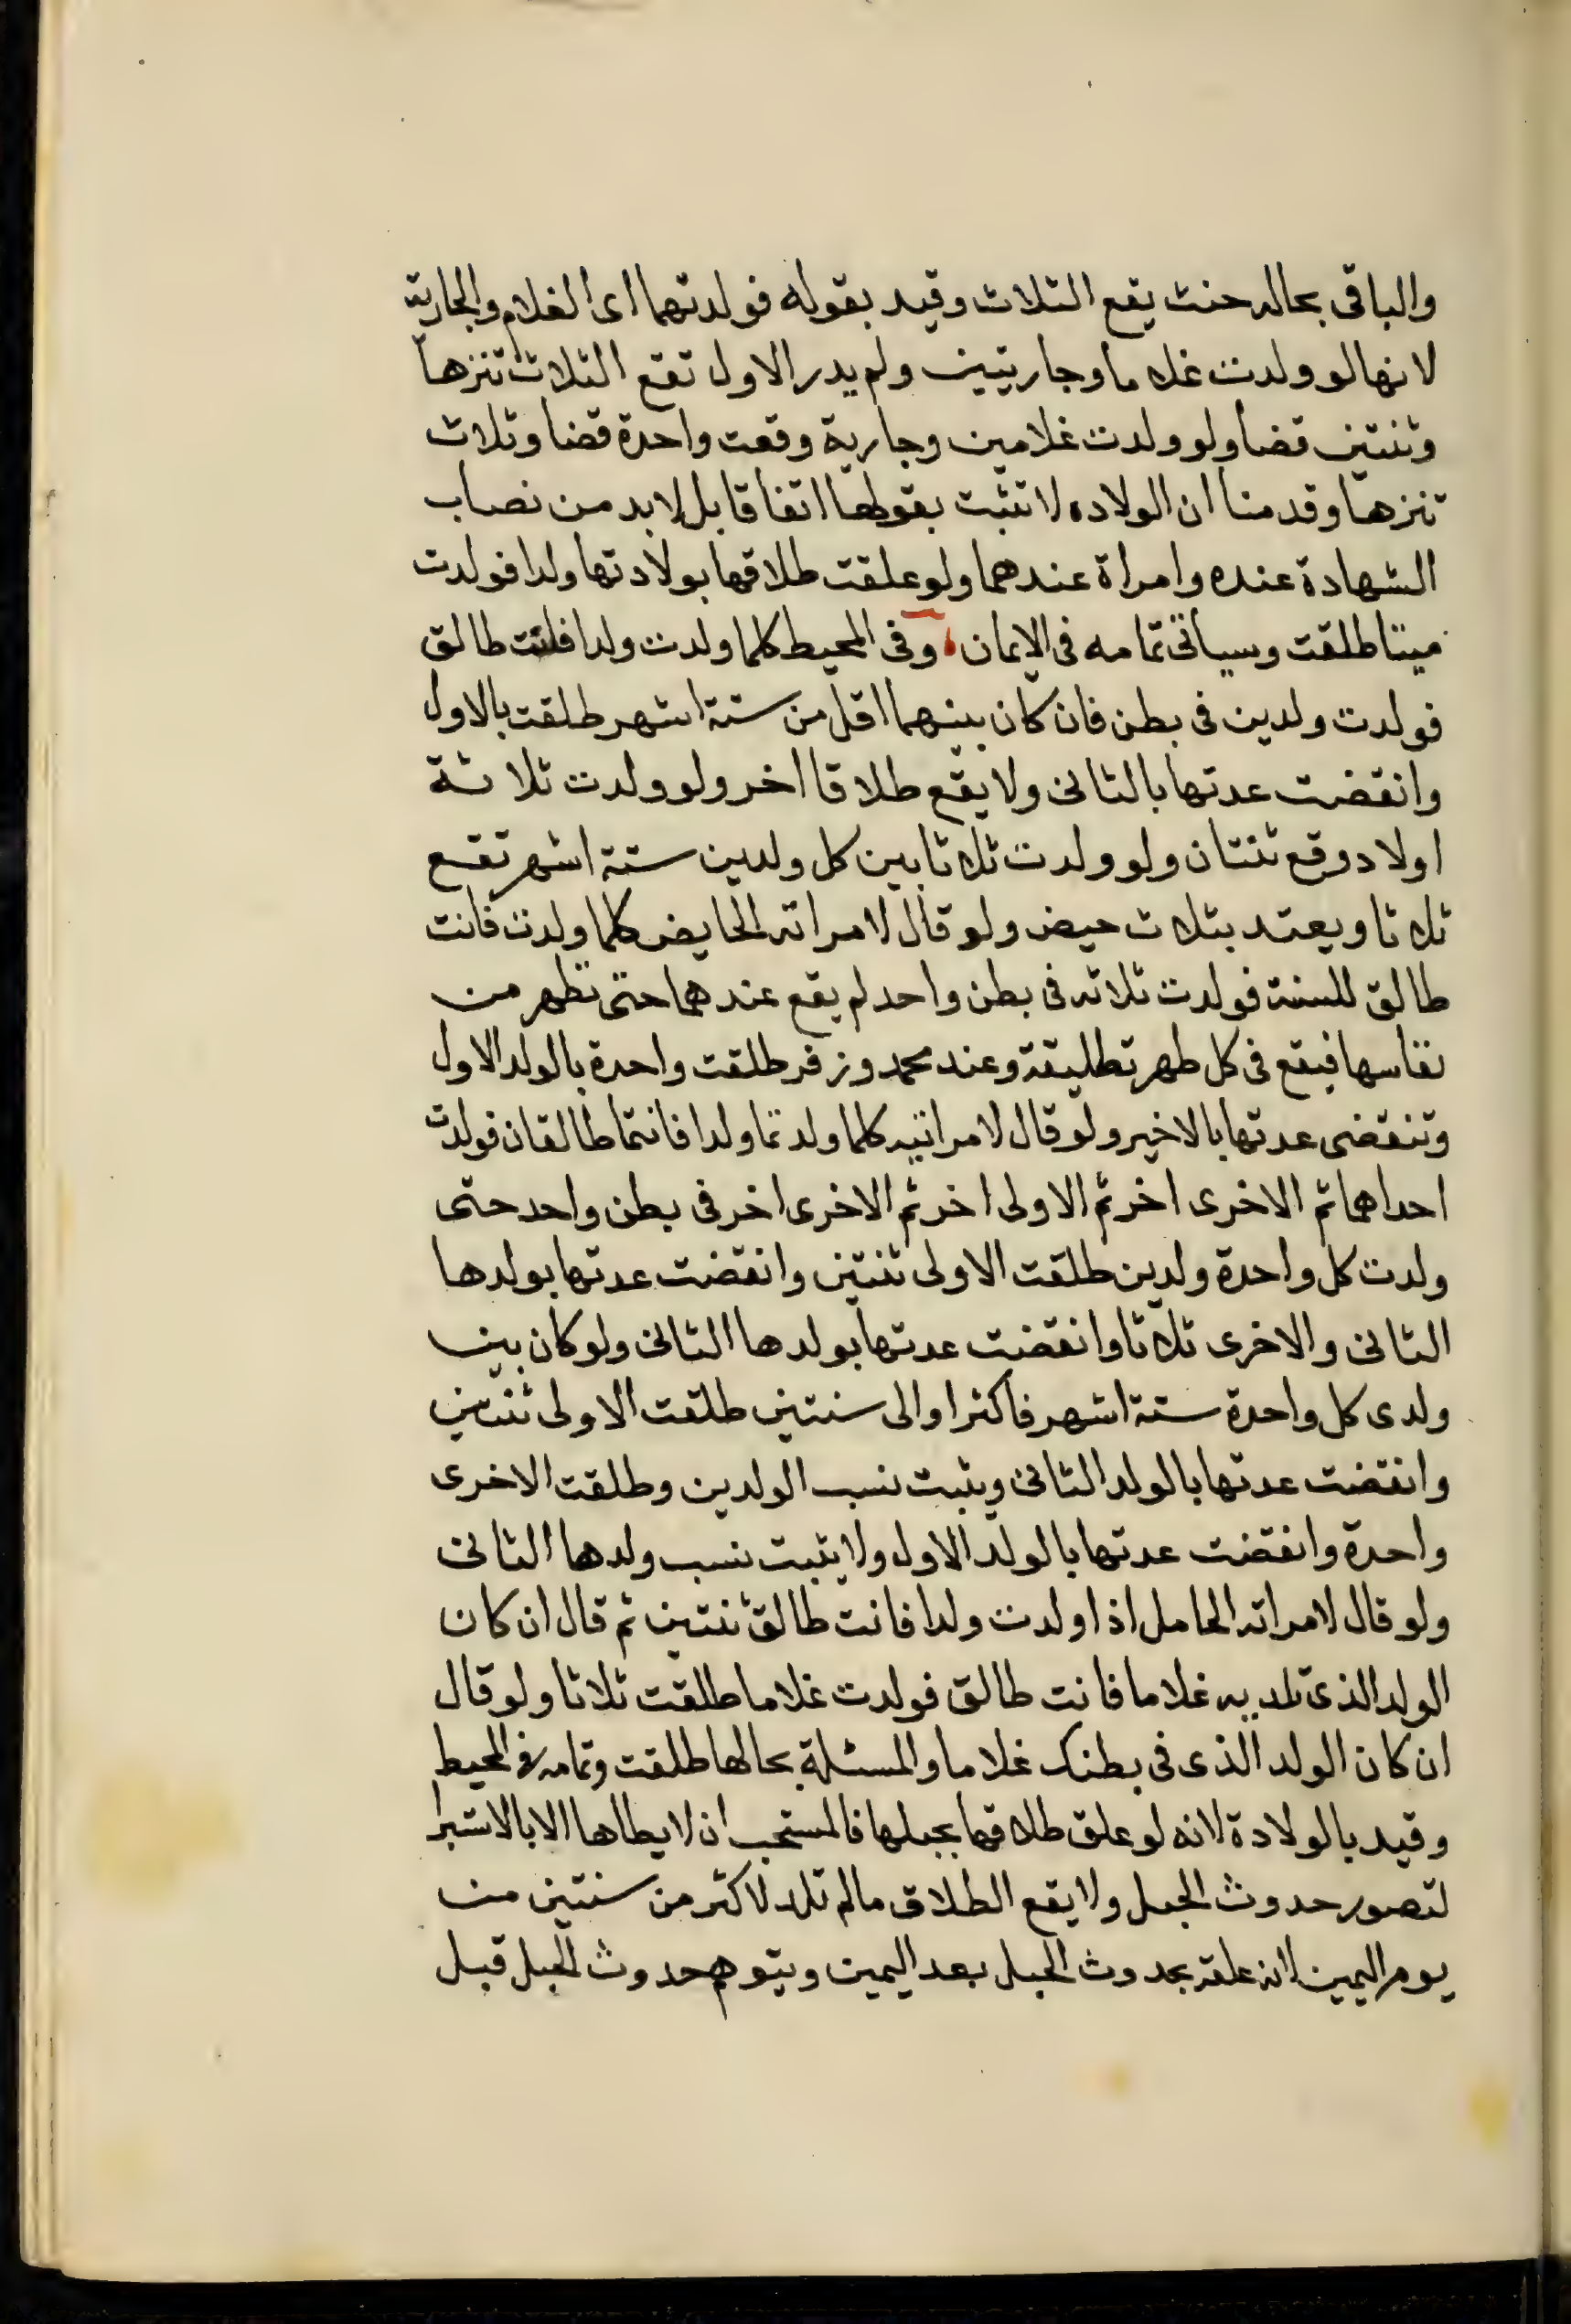 والباقى بحاله حنث يقع الثلاث وقيد بقوله فولدتهما اى الغلام والجارية
لانها لو ولدت غلاما وجاريتين ولم يدر الاول تقع الثلاث تنزها
وثنتين قضا ولو ولدت غلامين وجارية وقعت واحدة قضا وثلاث
تنزها وقدمنا ان الولاده لا تثبت بقولها اتفاقا بل لا بد من نصاب
الشهادة عنده وامراة عندهما ولو علقت طلاقها بولادتها ولدا فولدت
ميتا طلقت وسياتى تمامه فى الايمان، وفى المحيط كلما ولدت ولدا فانت طالق
فولدت ولدين فى بطن فان كان بينهما اقل من ستة اشهر طلقت بالاول
وانقضت عدتها بالثانى ولا يقع طلاقا اخر ولو ولدت ثلاثة
اولاد وقع ثنتان ولو ولدت ثلاثا بين كل ولدين ستة اشهر تقع
ثلاثا ويعتد بثلاث حيض ولو قال لامراته الحايض كلما ولدت فانت
طالق للسنة فولدت ثلاثه فى بطن واحد لم يقع عندهما حتى تطهر من
نفاسها فيقع فى كل طهر تطليقة وعند محمد وزفر طلقت واحدة بالولد الاول
وتنقضى عدتها بالاخير ولو قال لامراتيه كلما ولدتما ولدا فانتما طالقان فولدت
احداهما ثم الاخرى اخر ثم الاولى اخر ثم الاخرى اخر فى بطن واحد حتى
ولدت كل واحدة ولدين طلقت الاولى ثنتين وانقضت عدتها بولدها
الثانى والاخرى ثلاثا وانقضت عدتها بولدها الثانى ولو كان بين
ولدى كل واحدة ستة اشهر فاكثر اوالى سنتين طلقت الاولى ثنتين
وانقضت عدتها بالولد الثانى ويثبت نسب الولدين وطلقت الاخرى
واحدة وانقضت عدتها بالولد الاول ولا يثبت نسب ولدها الثانى
ولو قال لامراته الحامل اذا ولدت ولدا فانت طالق ثنتين ثم قال ان كان
الولد الذى تلديه غلاما فانت طالق فولدت غلاما طلقت ثلاثا ولو قال
ان كان الولد الذى فى بطنك غلاما والمسئلة بحالها طلقت وتمامه فى المحيط
وقيد بالولادة لانه لو علق طلاقها بحبلها فالمستحب ان لا يطاها الا بالاستبرا
لتصور حدوث الحبل ولا يقع الطلاق مالم تلد لاكثر من سنتين من
يوم اليمين لانه علقه بحدوث الحبل بعد اليمين ويتوهم حدوث الحبل قبل